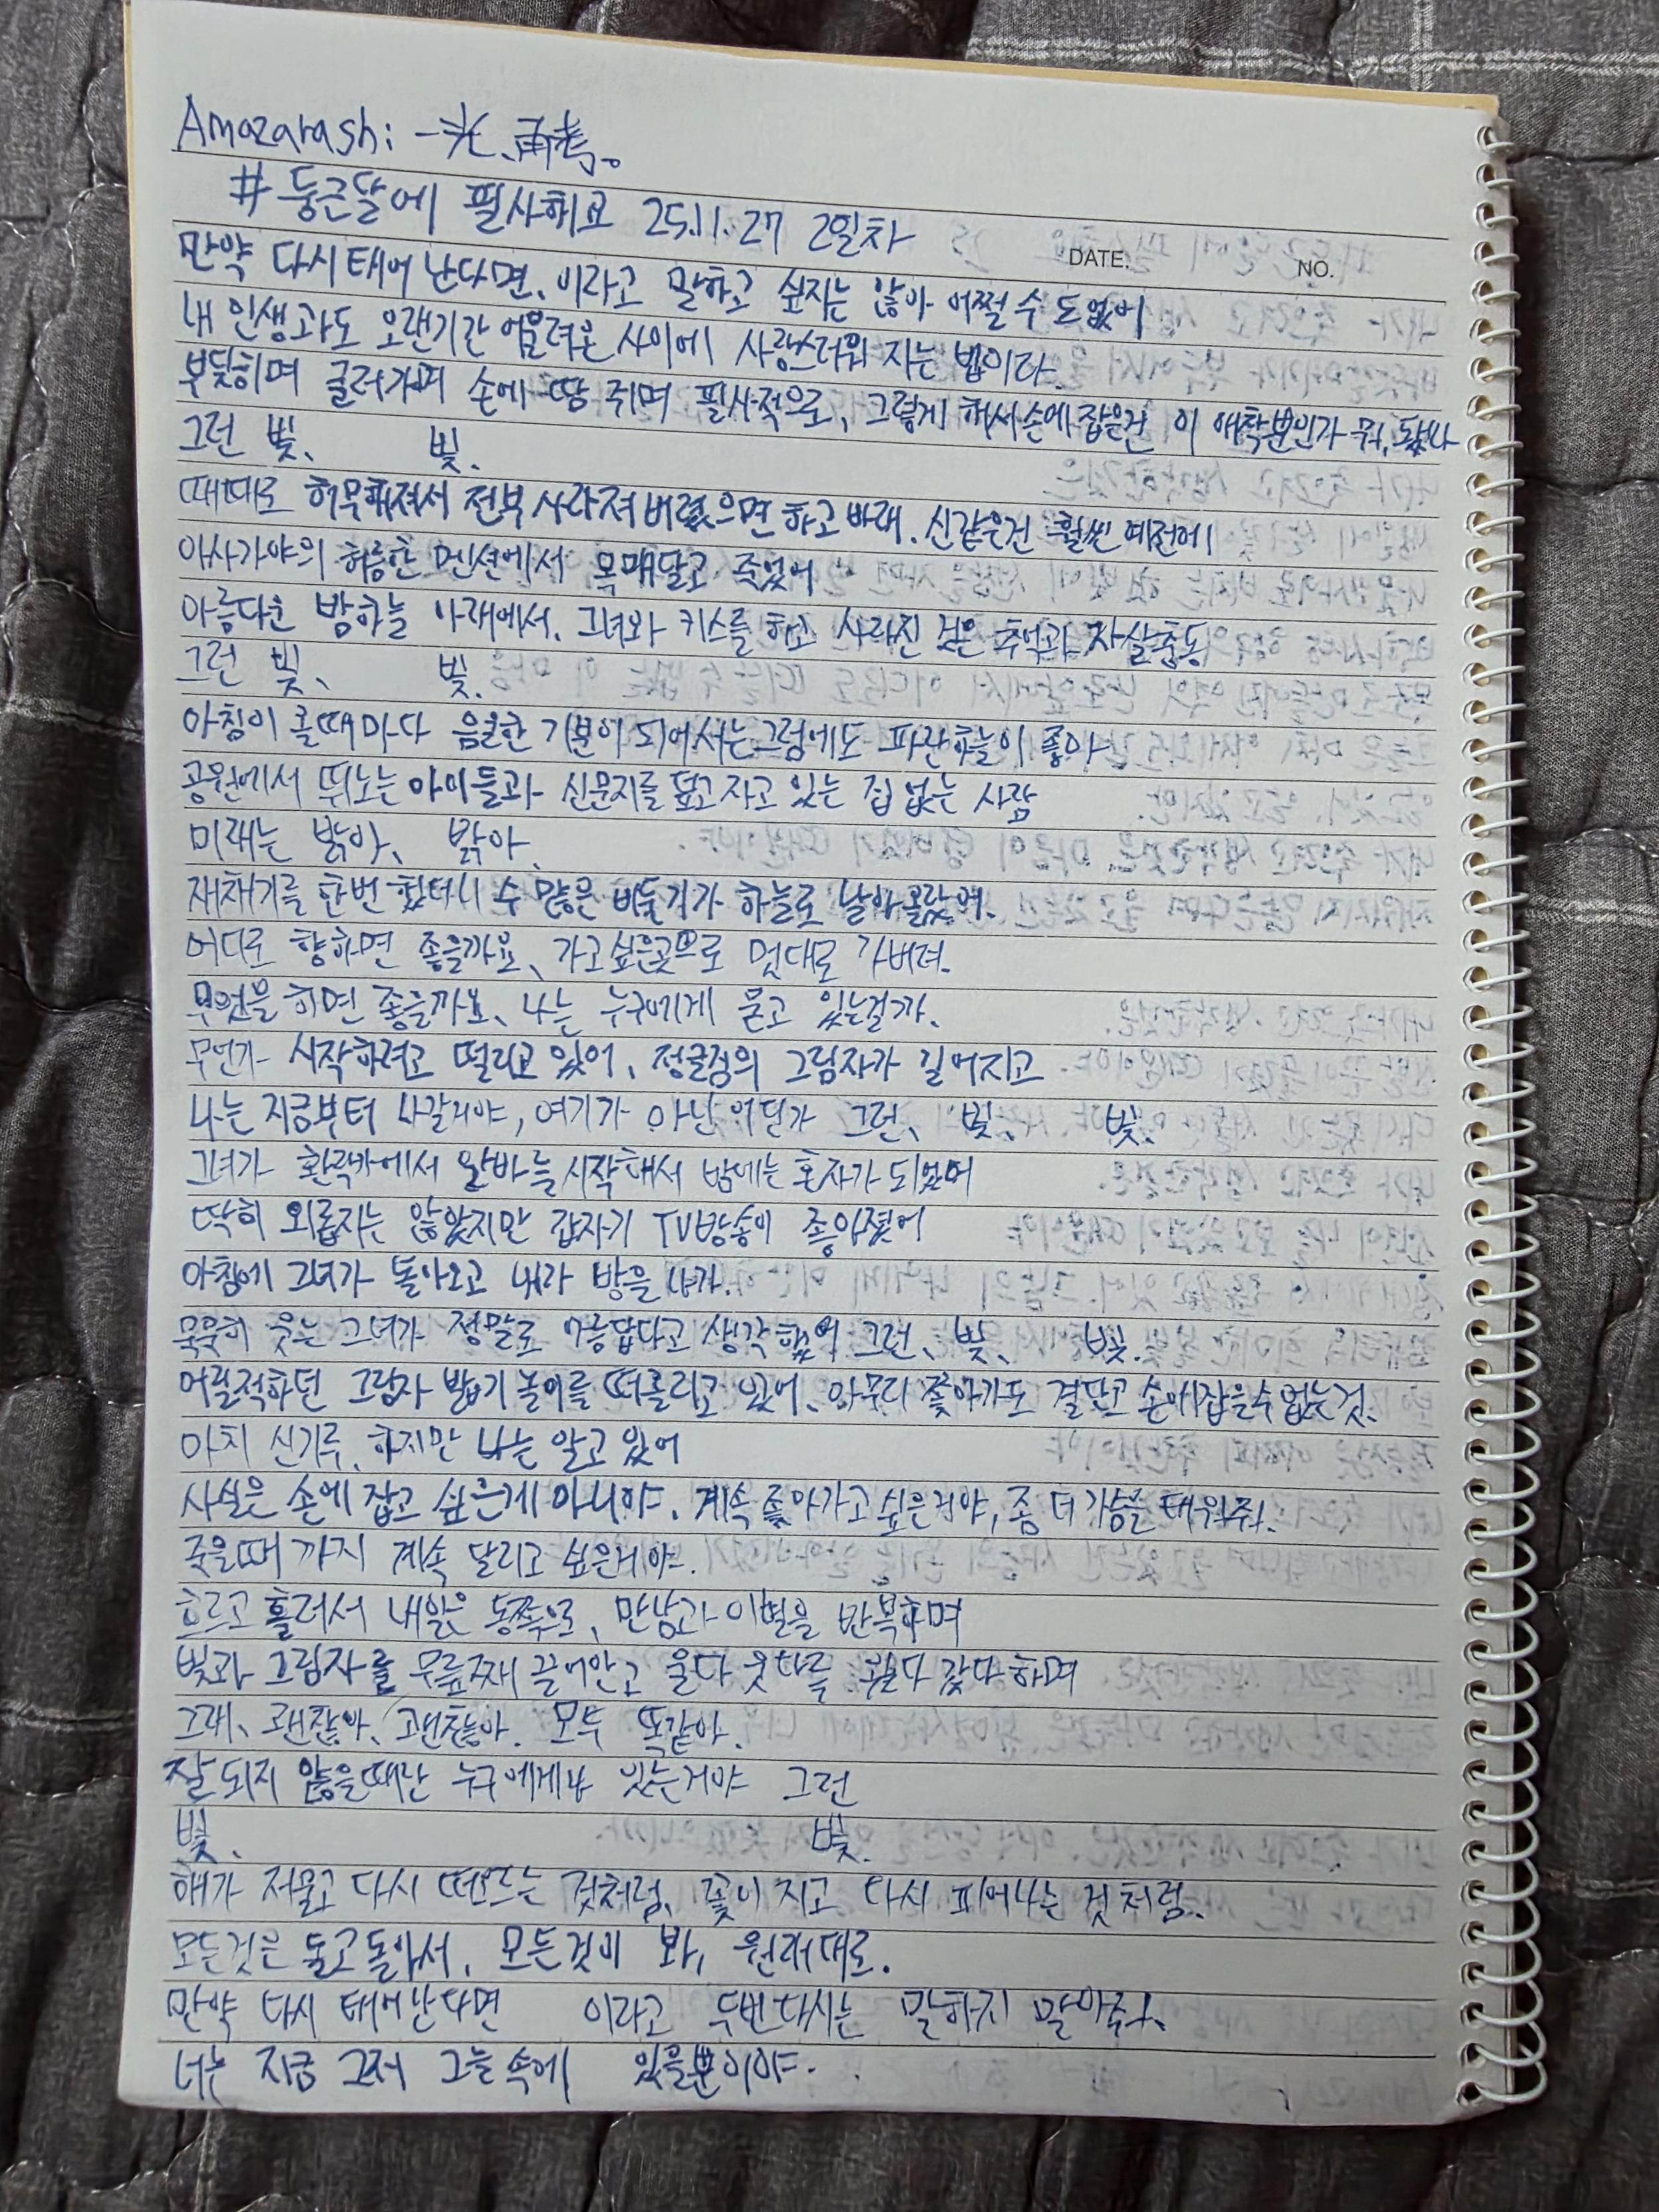 Amazarashi - 光、再考。
# 둥근달에 필사해요 25.11.27 2일차
DATE.
NO.
만약 다시 태어 난다면、이라고 말하고 싶지는 않아 어쩔 수 도 없이
내 인생과도 오랜기간 어울려온 사이에 사랑스러워 지는 법이다.
부딪히며 굴러가며 손에 땀 쥐며 필사적으로, 그렇게 해서 손에 잡은건 이 애착뿐인가 뭐, 됐나
그런 빛、 빛.
때때로 허무해져서 전부 사라져 버렸으면 하고 바래. 신같은건 훨씬 예전에
아사가야의 허름한 멘션에서 목매달고 죽었어
아름다운 밤하늘 아래에서. 그녀와 키스를 하고 사라진 것은 추억과 자살충동
그런 빛、 빛.
아침이 올때마다 음울한 기분이 되어서는 그럼에도 파란하늘이 좋아
공원에서 뛰노는 아이들과 신문지를 덮고 자고 있는 집 없는 사람
미래는 밝아、 밝아.
재채기를 한번 했더니 수 많은 비둘기가 하늘로 날아올랐어.
어디로 향하면 좋을까요、가고싶은곳으로 멋대로 가버려.
무엇을 하면 좋을까요、나는 누구에게 묻고 있는걸까.
무언가 시작하려고 떨리고 있어、정글짐의 그림자가 길어지고
나는 지금부터 나갈거야, 여기가 아닌 어딘가 그런、 빛、 빛.
그녀가 환락가에서 알바를 시작해서 밤에는 혼자가 되었어
딱히 외롭지는 않았지만 갑자기 TV방송이 좋아졌어
아침에 그녀가 돌아오고 내가 방을 나가.
묵묵히 웃는 그녀가 정말로 아름답다고 생각했어 그런、빛、 빛.
어릴적하던 그림자 밟기 놀이를 떠올리고 있어、아무리 쫓아가도 결단코 손에 잡을수 없는 것.
마치 신기루. 하지만 나는 알고 있어
사실은 손에 잡고 싶은게 아니야. 계속 쫓아가고 싶은거야, 좀 더 가슴을 태워줘.
죽을때 까지 계속 달리고 싶은거야.
흐르고 흘러서 내일은 동쪽으로、만남과 이별을 반복하며
빛과 그림자를 무릎째 끌어안고 울다 웃다를 하며
그래、괜찮아、괜찮아. 모두 똑같아.
잘 되지 않을때란 누구에게나 있는거야 그런
빛. 빛.
해가 저물고 다시 떠오르는 것처럼、꽃이 지고 다시 피어나는 것처럼.
모든것은 돌고 돌아서, 모든것이 봐, 원래대로.
만약 다시 태어난다면 이라고 두번다시는 말하지 말아줘.
너는 지금 그저 그늘 속에 있을뿐이야.